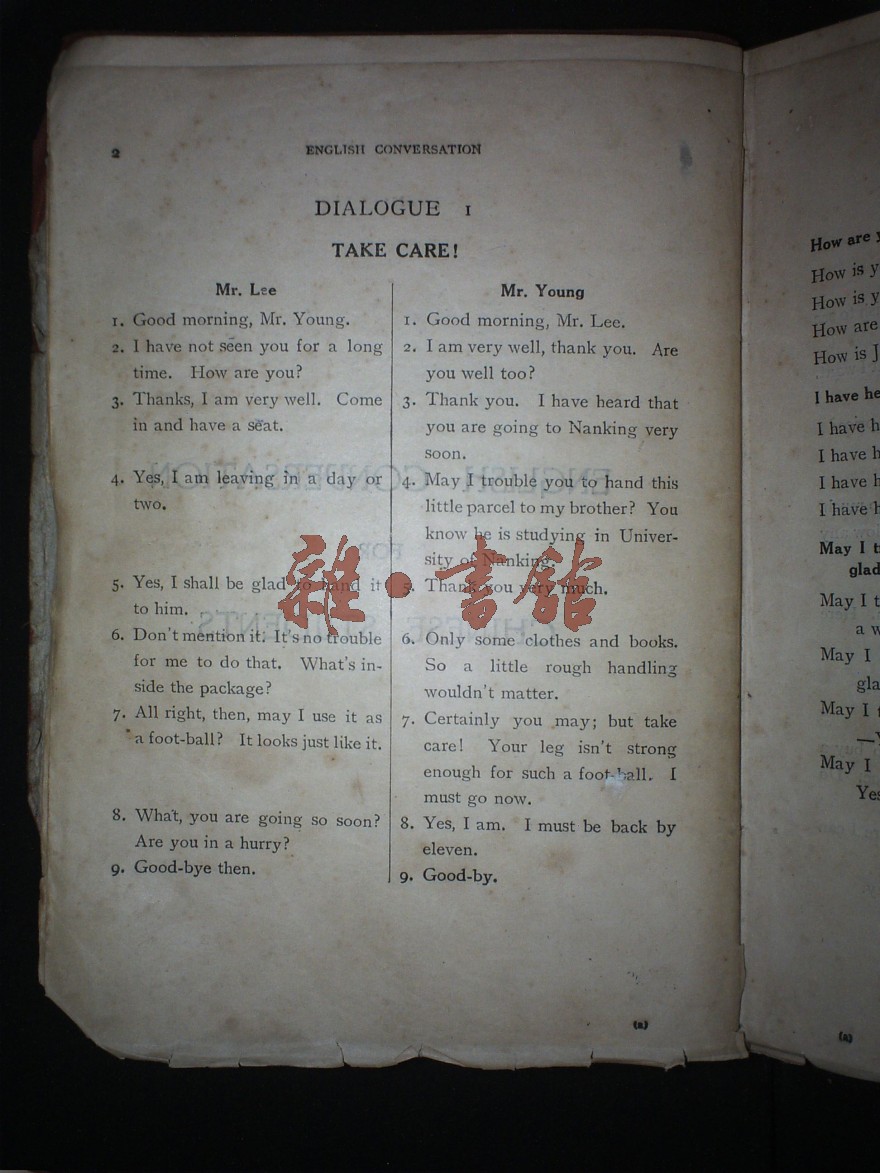 2
ENGLISH CONVERSATION
DIALOGUE 1
TAKE CARE!
Mr. Lee
1. Good morning, Mr. Young.
2. I have not seen you for a long
time. How are you?
3. Thanks, I am very well. Come
in and have a seat.
4. Yes, I am leaving in a day or
two.
5. Yes, I shall be glad to hand it
to him.
6. Don't mention it. It's no trouble
for me to do that. What's in-
side the package?
7. All right, then, may I use it as
a foot-ball? It looks just like it.
8. What, you are going so soon?
Are you in a hurry?
9. Good-bye then.
Mr. Young
1. Good morning, Mr. Lee.
2. I am very well, thank you. Are
you well too?
3. Thank you. I have heard that
you are going to Nanking very
soon.
4. May I trouble you to hand this
little parcel to my brother? You
know he is studying in Univer-
sity of Nanking.
5. Thank you very much.
6. Only some clothes and books.
So a little rough handling
wouldn't matter.
7. Certainly you may; but take
care! Your leg isn't strong
enough for such a foot-ball. I
must go now.
8. Yes, I am. I must be back by
eleven.
9. Good-by.
(2)
雜·書館
How are y
How is y
How is y
How are
How is J
I have he
I have h
I have h
I have h
I have h
May I t
glad
May I t
a w
May I
gla
May I t
—Y
May I
Yes
(2)